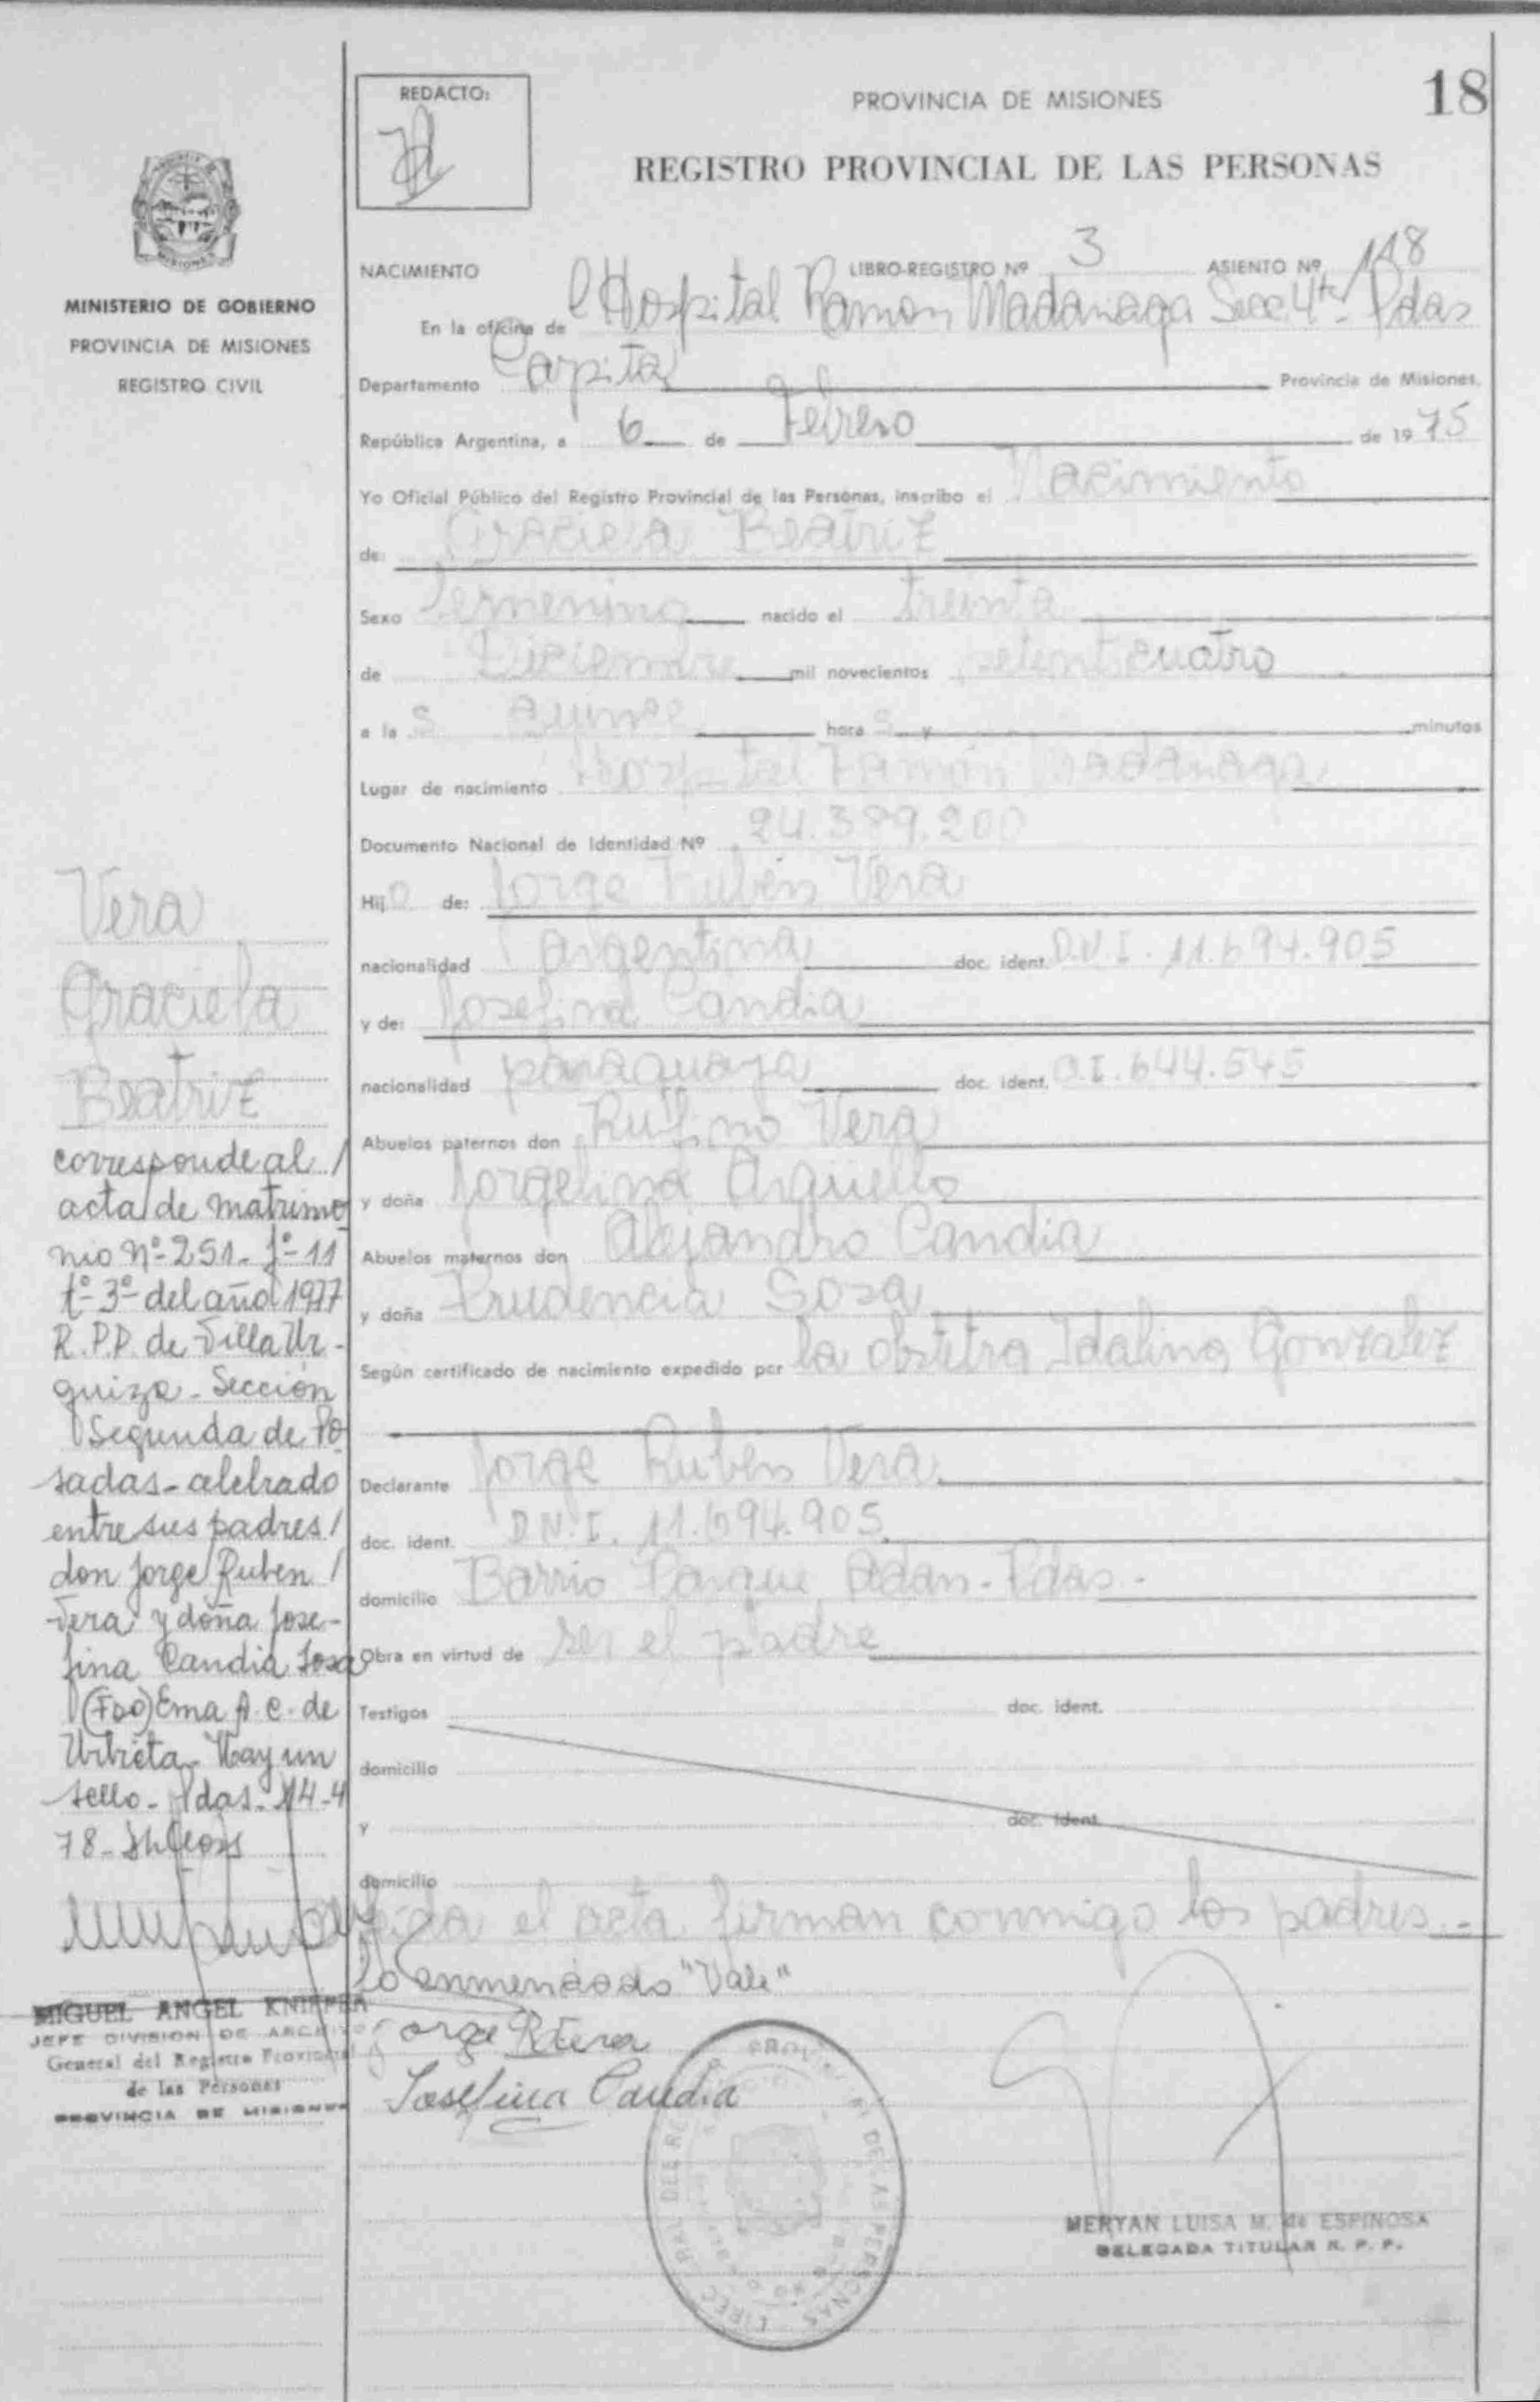 18
REDACTO:
PROVINCIA DE MISIONES
REGISTRO PROVINCIAL DE LAS PERSONAS
MINISTERIO DE GOBIERNO
PROVINCIA DE MISIONES
REGISTRO CIVIL
NACIMIENTO LIBRO-REGISTRO Nº 3 ASIENTO Nº 118
En la oficina de Hospital Ramon Madariaga Secc. 4ta Pdas
Departamento Capital Provincia de Misiones,
República Argentina, a 6 de Febrero de 1975
Yo Oficial Público del Registro Provincial de las Personas, inscribo el Nacimiento
de: Graciela Beatriz
Sexo Femenino nacido el treinta
de Diciembre mil novecientos setenticuatro
a las quince horas y minutos
Lugar de nacimiento Hospital Ramón Madariaga
Documento Nacional de Identidad Nº 24.389.200
Hijo de: Jorge Rubén Vera
nacionalidad Argentina doc. ident. D.N.I. 11.694.905
y de: Josefina Candia
nacionalidad paraguaya doc. ident. C.I. 644.545
Abuelos paternos don Rufino Vera
y doña Jorgelina Arguello
Abuelos maternos don Alejandro Candia
y doña Prudencia Sosa
Según certificado de nacimiento expedido por la obstetra Idalina Gonzalez
Declarante Jorge Ruben Vera
doc. ident. D.N.I. 11.694.905
domicilio Barrio Parque Adan - Pdas -
Obra en virtud de ser el padre
Testigos doc. ident.
domicilio
y doc. ident.
domicilio
el acta firman conmigo los padres.-
lo enmendado "Vale"
Jorge R Vera
Josefina Candia
MERYAN LUISA M. de ESPINOSA
DELEGADA TITULAR R. P. P.
Vera
Graciela
Beatriz
corresponde al /
acta de matrimo
nio Nº 251 - fº 11
tº 3º del año 1977
R.P.P. de Villa Ur-
quiza - Sección
Segunda de Po
sadas - celebrado
entre sus padres /
don Jorge Ruben /
Vera y doña Jose-
fina Candia Sosa
(Fdo) Ema A. C. de
Urbieta - Hay un
sello - Pdas - 14-4
78 -
MIGUEL ANGEL KNIPPER
JEFE DIVISION DE ARCHIVO
General del Registro Provincial
de las Personas
PROVINCIA DE MISIONES